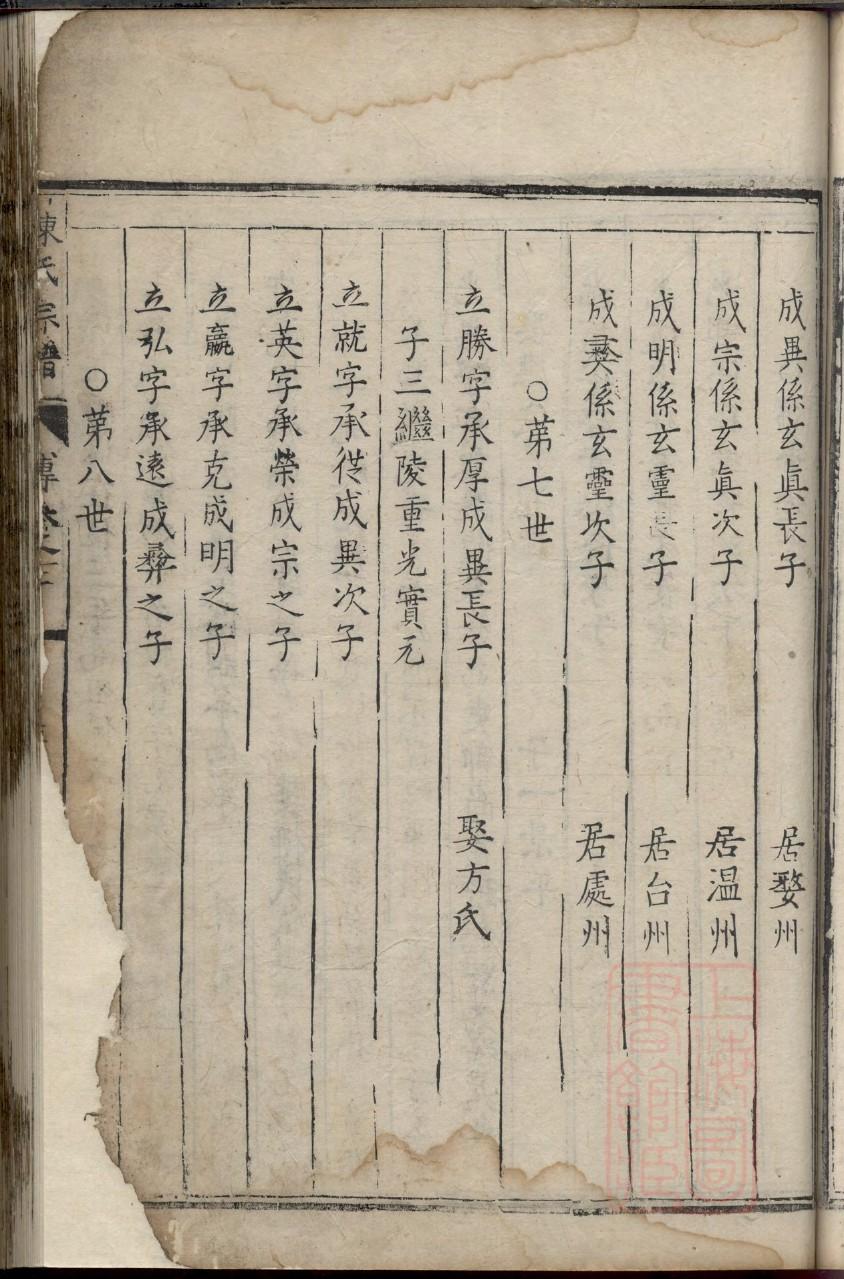 成異係玄眞長子 居婺州
成宗係玄眞次子 居温州
成明係玄靈長子 居台州
成彛係玄靈次子 居處州
○第七世
立勝字承厚成異長子 娶方氏
子三繼陵重光實元
立就字承從成異次子
立英字承榮成宗之子
立贏字承克成明之子
立弘字承遠成彛之子
○第八世
陳氏宗譜
上海圖書館藏